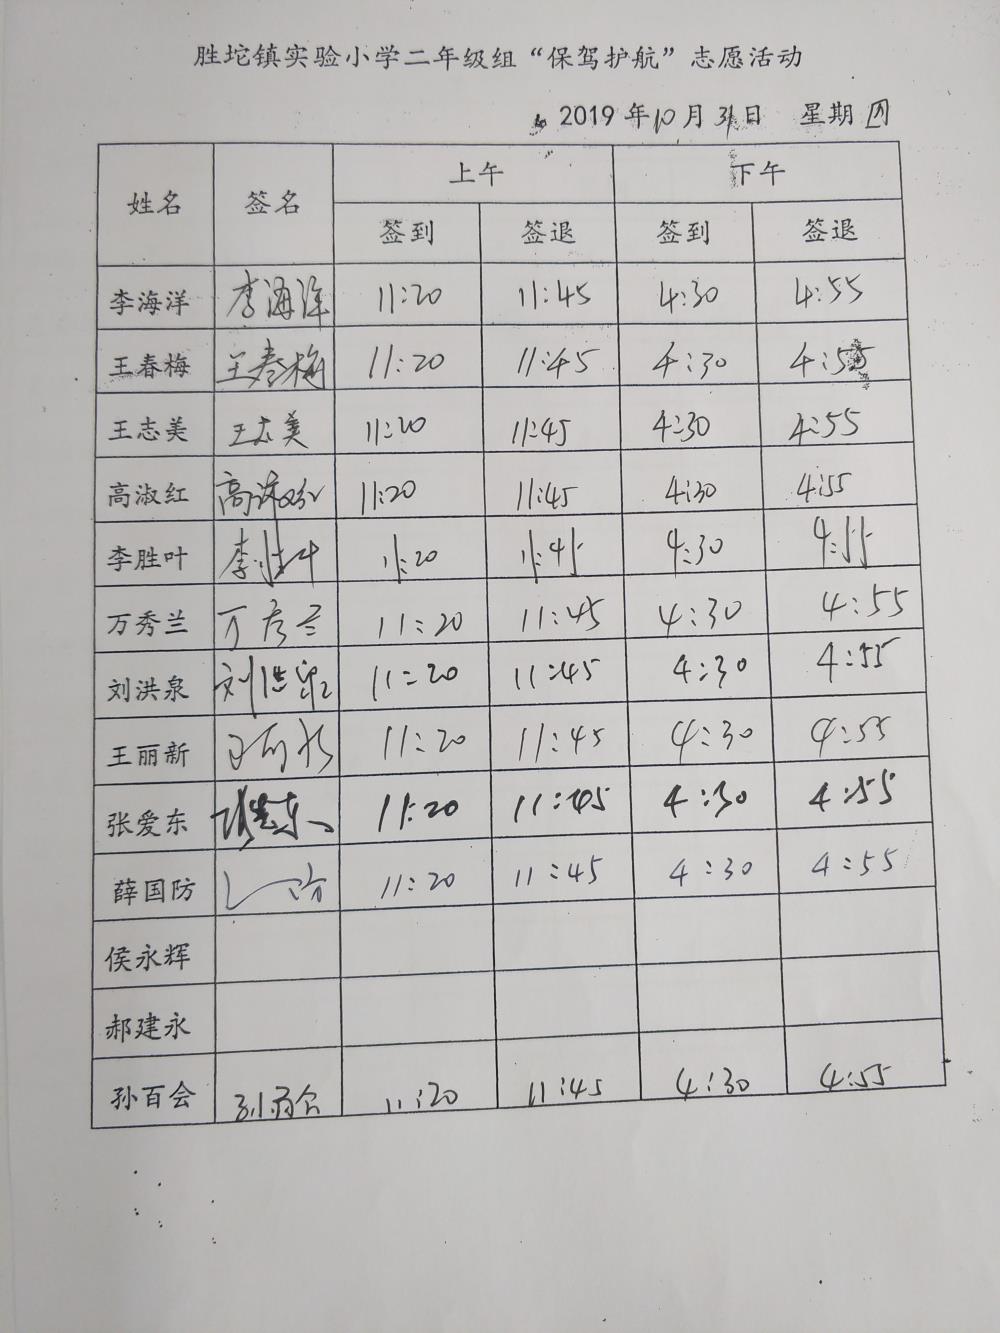 胜坨镇实验小学二年级组“保驾护航”志愿活动
2019年10月31日 星期四
姓名 签名 上午 下午
签到 签退 签到 签退
李海洋 李海洋 11:20 11:45 4:30 4:55
王春梅 王春梅 11:20 11:45 4:30 4:55
王志美 王志美 11:20 11:45 4:30 4:55
高淑红 高淑红 11:20 11:45 4:30 4:55
李胜叶 李胜叶 11:20 11:45 4:30 4:55
万秀兰 万秀兰 11:20 11:45 4:30 4:55
刘洪泉 刘洪泉 11:20 11:45 4:30 4:55
王丽新 王丽新 11:20 11:45 4:30 4:55
张爱东 张爱东 11:20 11:45 4:30 4:55
薛国防 11:20 11:45 4:30 4:55
侯永辉
郝建永
孙百会 孙百会 11:20 11:45 4:30 4:55